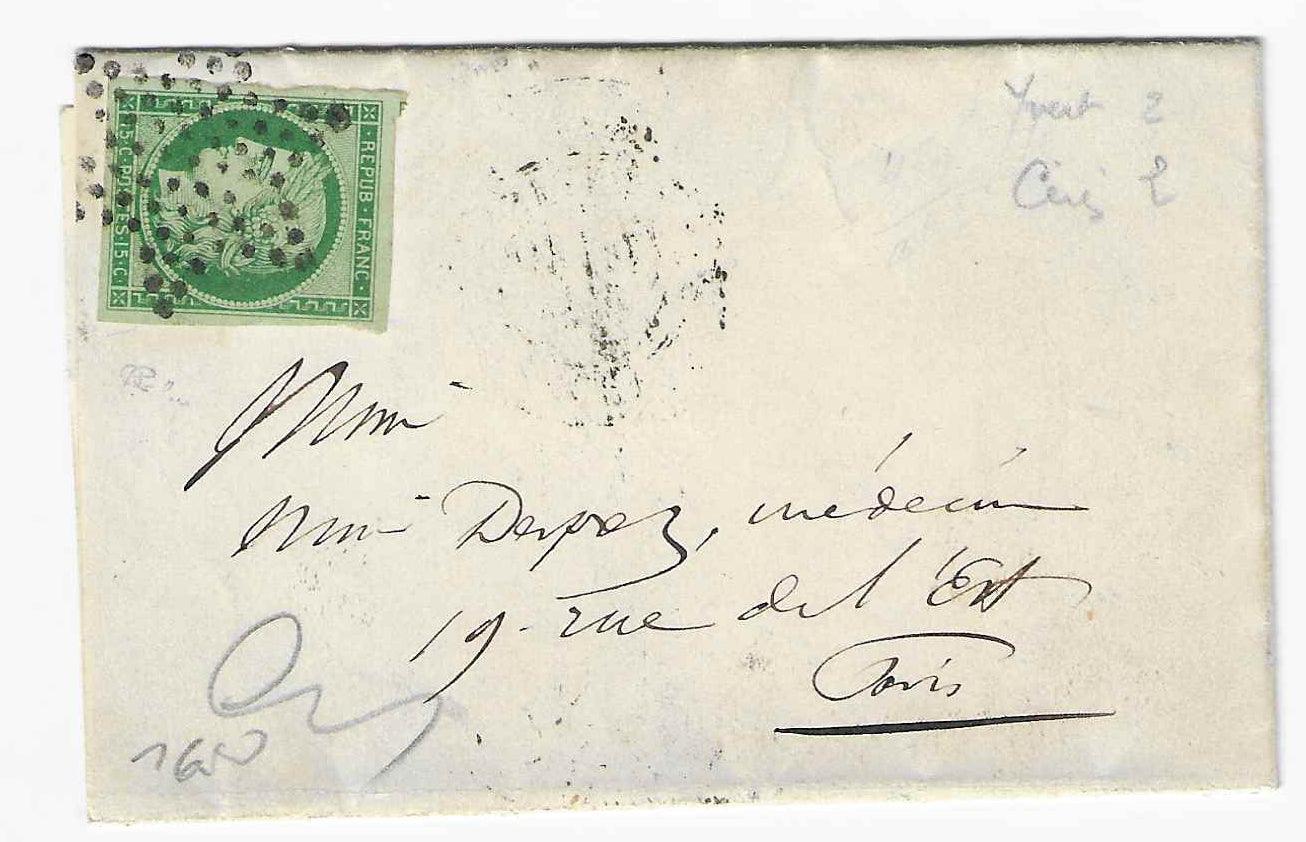 REPUB·FRANC·
15·C·POSTES·15·C·
Yvert 2
Cérès 2
Monsieur
Monsieur Desprez, médecin
19 rue de l'Est
Paris
1600